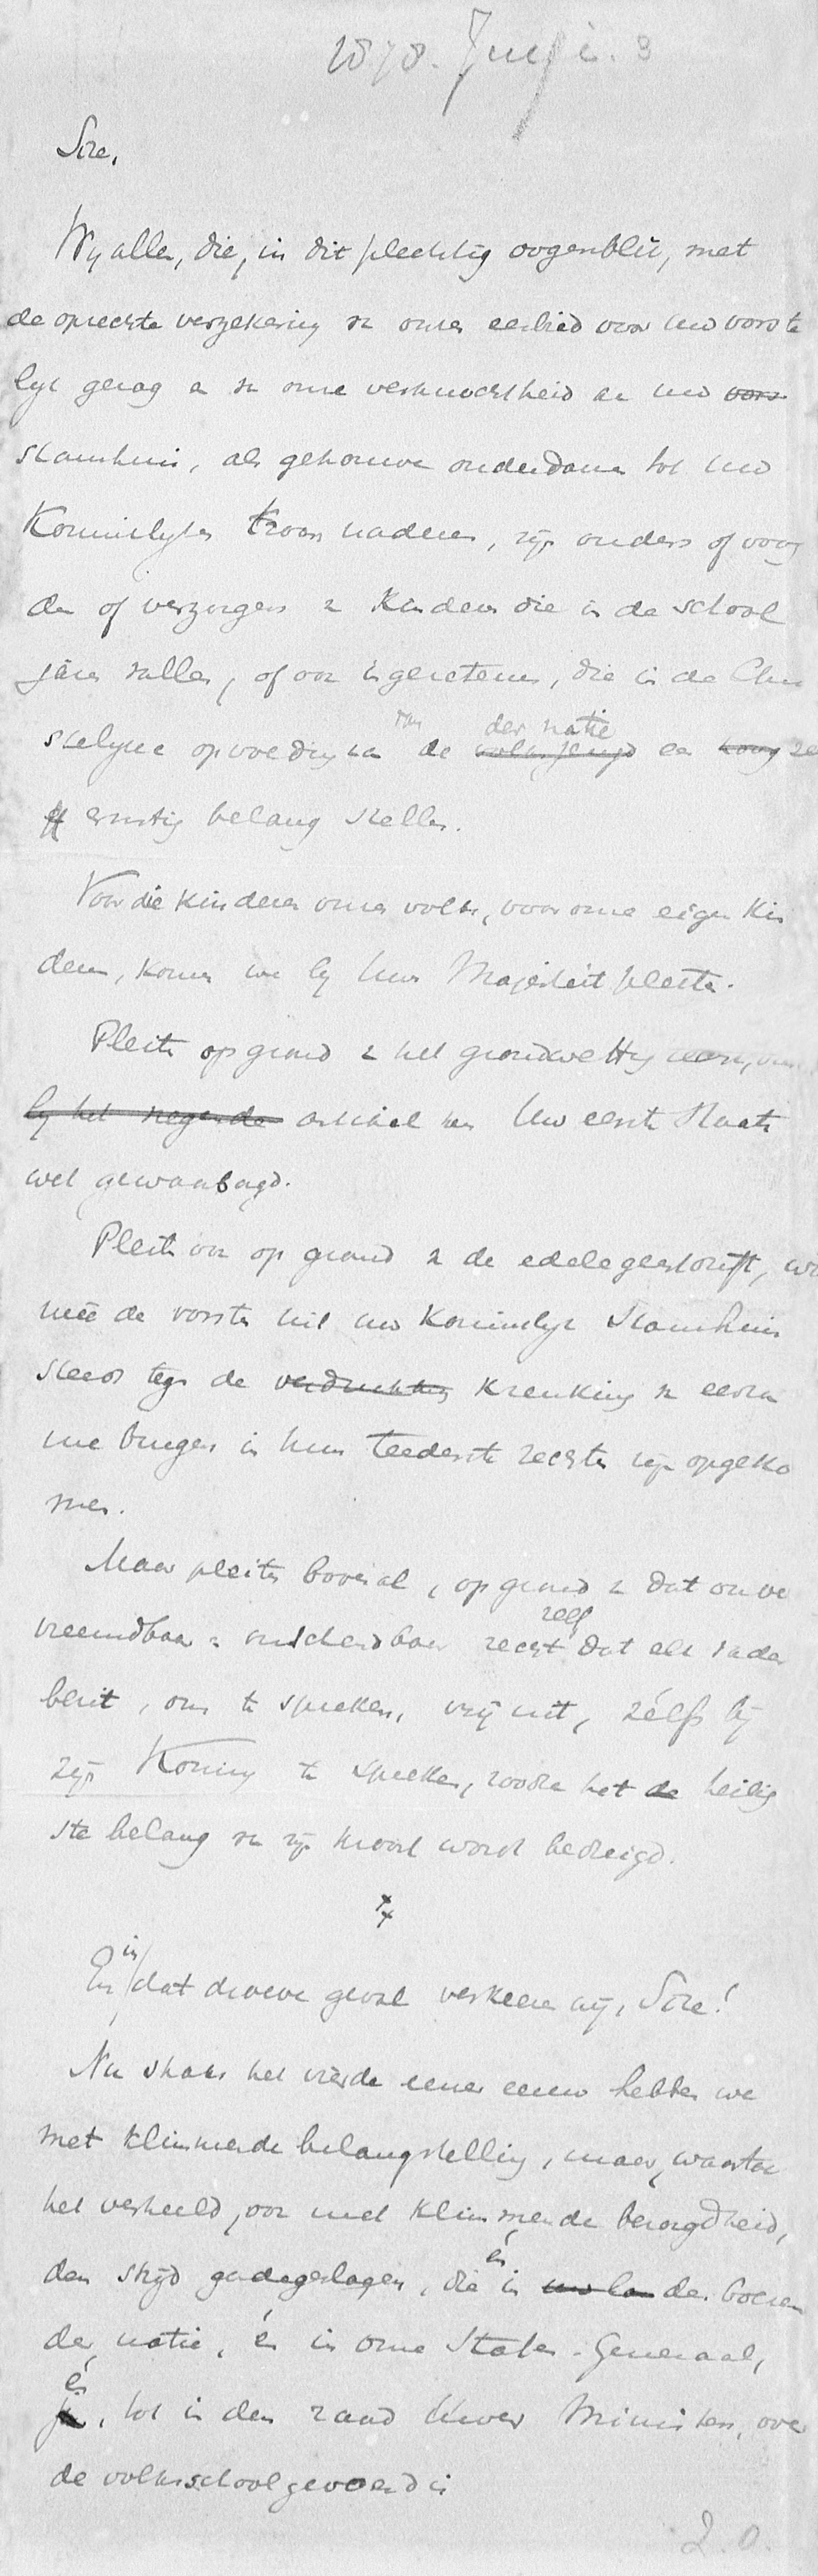 1878. Juli. 3
Sire,
Wij allen, die, in dit plechtig oogenblik, met
de oprechte verzekering van onzen eerbied voor Uw vorste
lijk gezag en van onze verknochtheid aan Uw vors
stamhuis, als getrouwe onderdanen tot Uw
Koninklijken troon naderen, zijn ouders of voog
den of verzorgers van kinderen die in de school
jaren vallen, of ook ingezetenen, die in de Chri
stelijke opvoeding van de volksjeugd der natie en
ernstig belang stellen.
Voor die kinderen onzes volks, voor onze eigen kin
deren, komen we bij Uwe Majesteit pleiten.
Pleiten op grond van het grondwettig
bij het negende artikel van Uw eerste Staats
wet gewaarborgd.
Pleiten ook op grond van de edele geestdrift, wa
meê de vorsten uit uw Koninklijk Stamhuis
steeds tegen de verdrukking krenking van eerza
me burgers in hun teederste rechten zijn opgeko
men.
Maar pleiten bovenal, op grond van dat onver
vreemdbaar en onscheidbaar recht zelf dat elk vader
bezit, om te spreken, vrij uit, zélfs bij
zijn Koning te spreken, zoodra het de heilig
ste belang van zijn kroost wordt bedreigd.
En in dat droeve geval verkeeren wij, Sire!
Nu straks het vierde eener eeuw hebben we
met klimmende belangstelling, maar, waartoe
het verheeld, ook met klimmende bezorgdheid,
den strijd gadegeslagen, die én in uw lan den boezem
der natie, én in onze Staten-Generaal,
ja én, tot in den raad Uwer Ministers, over
de volksschool gevoerd is
2. 0.